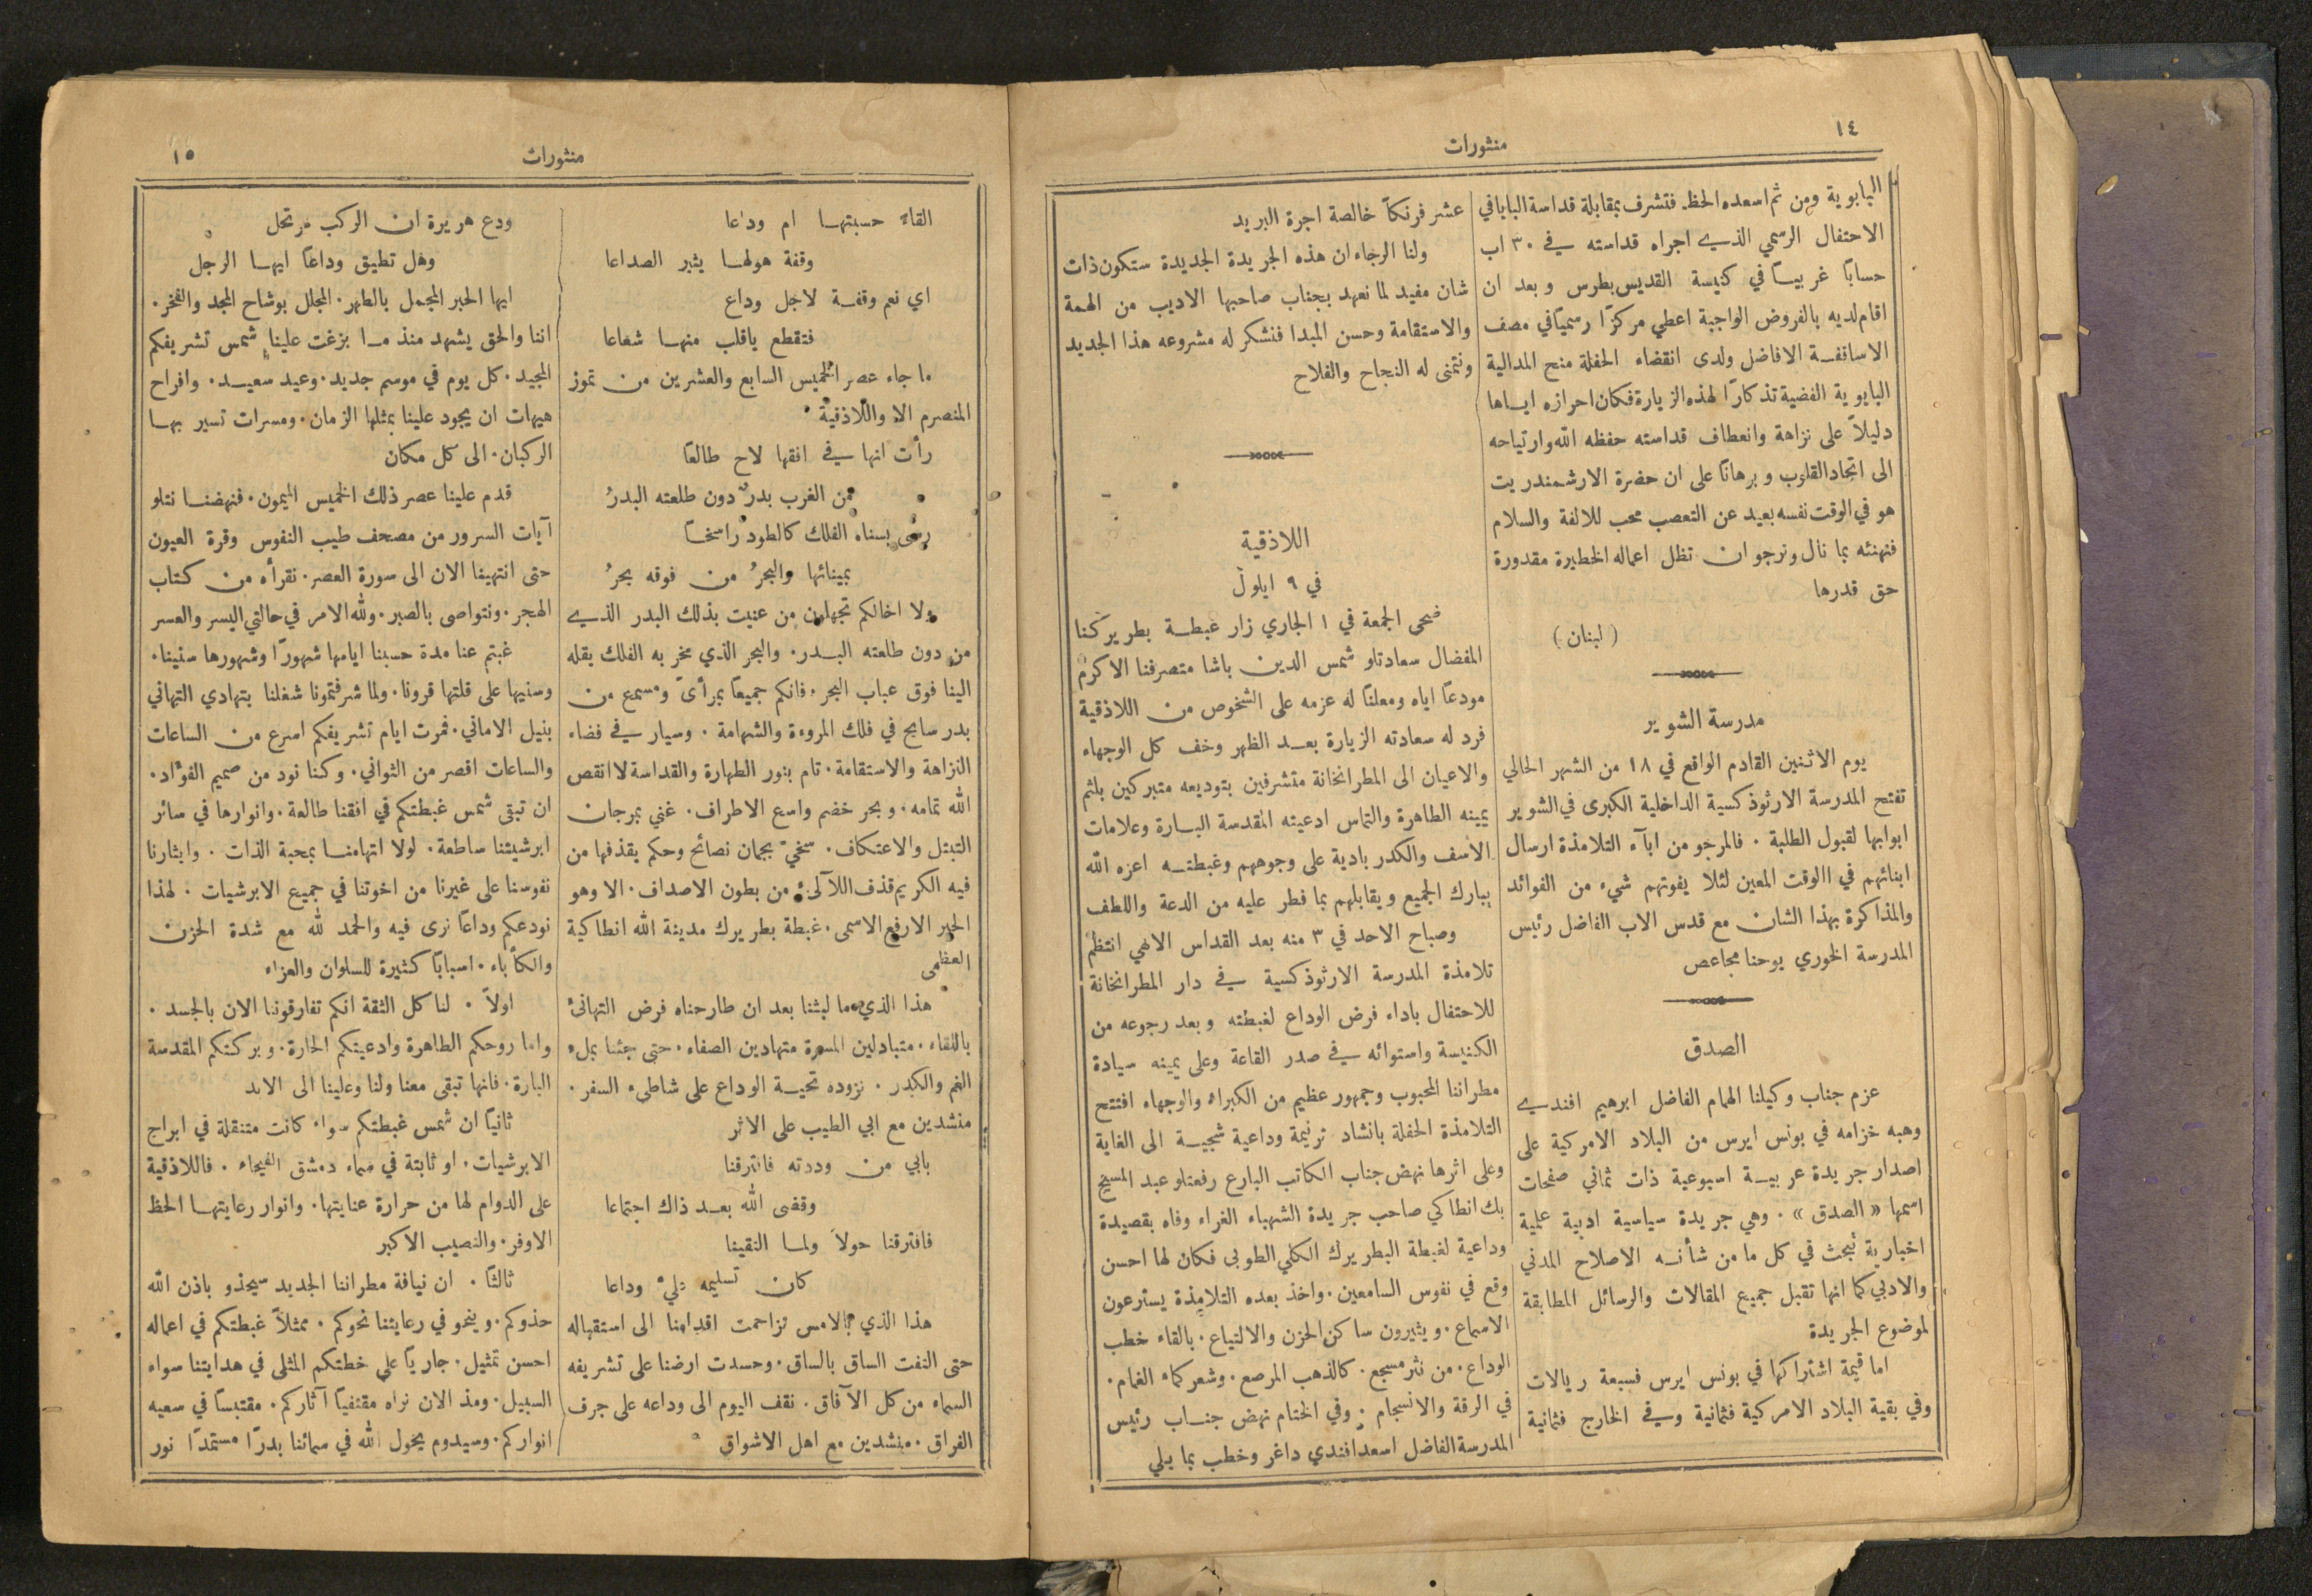 ١٤
منثورات
البابوية ومن ثم اسعده الحظ. فتشرف بمقابلة قداسة البابا في
الاحتفال الرسمي الذي اجراه قداسته في ٣٠ اب
حسابًا غربيًا في كنيسة القديس بطرس وبعد ان
اقام لديه بالفروض الواجبة اعطي مركزًا رسميًا في مصف
الاساقفة الافاضل ولدى انقضاء الحفلة منح المدالية
البابوية الفضية تذكارًا لهذه الزيارة فكان احرازه اياها
دليلاً على نزاهة وانعطاف قداسته حفظه الله وارتياحه
الى اتحاد القلوب وبرهانًا على ان حضرة الارشمندريت
هو في الوقت نفسه بعيد عن التعصب محب للالفة والسلام
فنهنئه بما نال ونرجو ان تظل اعماله الخطيرة مقدورة
حق قدرها
(لبنان)
مدرسة الشوير
يوم الاثنين القادم الواقع في ١٨ من الشهر الحالي
تفتح المدرسة الارثوذكسية الداخلية الكبرى في الشوير
ابوابها لقبول الطلبة . فالمرجو من ابآء التلامذة ارسال
ابنائهم في االوقت المعين لئلا يفوتهم شيء من الفوائد
والمذاكرة بهذا الشان مع قدس الاب الفاضل رئيس
المدرسة الخوري يوحنا مجاعص
الصدق
عزم جناب وكيلنا الهمام الفاضل ابرهيم افندي
وهبه خزامه في بونس ايرس من البلاد الامركية على
اصدار جريدة عربية اسبوعية ذات ثماني صفحات
اسمها «الصدق» . وهي جريدة سياسية ادبية علمية
اخبارية تبحث في كل ما من شأنه الاصلاح المدني
والادبي كما انها تقبل جميع المقالات والرسائل المطابقة
لموضوع الجريدة
اما قيمة اشتراكها في بونس ايرس فسبعة ريالات
وفي بقية البلاد الامركية فثمانية وفي الخارج فثمانية
عشر فرنكًا خالصة اجرة البريد
ولنا الرجاء ان هذه الجريدة الجديدة ستكون ذات
شان مفيد لما نعهد بجناب صاحبها الاديب من الهمة
والاستقامة وحسن المبدا فنشكر له مشروعه هذا الجديد
ونتمنى له النجاح والفلاح
اللاذقية
في ٩ ايلول
ضحى الجمعة في ١ الجاري زار غبطة بطريركنا
المفضال سعادتلو شمس الدين باشا متصرفنا الاكرم
مودعًا اياه ومعلنًا له عزمه على الشخوص من اللاذقية
فرد له سعادته الزيارة بعد الظهر وخف كل الوجهاء
والاعيان الى المطرانخانة متشرفين بتوديعه متبركين بلثم
يمينه الطاهرة والتماس ادعيته المقدسة البارة وعلامات
الاسف والكدر بادية على وجوههم وغبطته اعزه الله
يبارك الجميع ويقابلهم بما فطر عليه من الدعة واللطف
وصباح الاحد في ٣ منه بعد القداس الالهي انتظم
تلامذة المدرسة الارثوذكسية في دار المطرانخانة
للاحتفال باداء فرض الوداع لغبطته وبعد رجوعه من
الكنيسة واستوائه في صدر القاعة وعلى يمينه سيادة
مطراننا المحبوب وجمهور عظيم من الكبراء والوجهاء افتتح
التلامذة الحفلة بانشاد ترنيمة وداعية شجية الى الغاية
وعلى اثرها نهض جناب الكاتب البارع رفعتلو عبد المسيح
بك انطاكي صاحب جريدة الشهباء الغراء وفاه بقصيدة
وداعية لغبطة البطريرك الكلي الطوبى فكان لها احسن
وقع في نفوس السامعين. واخذ بعده التلامذة يسترعون
الاسماع. ويثيرون ساكن الحزن والالتياع. بالقاء خطب
الوداع. من نثر مسجع. كالذهب المرصع. وشعر كماء الغمام.
في الرقة والانسجام . وفي الختام نهض جناب رئيس
المدرسة الفاضل اسعد افندي داغر وخطب بما يلي
منثورات
١٥
القاءً حسبتها ام وداعا
وقفة هولها يثير الصداعا
اي نعم وقفة لاجل وداع
فتقطع ياقلب منها شعاعا
ما جاء عصر الخميس السابع والعشرين من تموز
المنصرم الا واللاذقية
رأت انها في افقها لاح طالعًا
من الغرب بدرٌ دون طلعته البدرُ
رسى بسناه الفلك كالطود راسخًا
بمينائها والبحرُ من فوقه بحرُ
ولا اخالكم تجهلون من عنيت بذلك البدر الذي
من دون طلعته البدر. والبحر الذي مخر به الفلك بقله
الينا فوق عباب البحر. فانكم جميعًا بمرأى ومسمع من
بدر سابح في فلك المروءة والشهامة . وسيار في فضاء
النزاهة والاستقامة. تام بنور الطهارة والقداسة لا انقص
الله تمامه. وبحر خضم واسع الاطراف. غني بمرجان
التبتل والاعتكاف. سخيّ بجمان نصائح وحكم يقذفها من
فيه الكريم قذف اللآلئ من بطون الاصداف. الا وهو
الحبر الارفع الاسمى. غبطة بطريرك مدينة الله انطاكية
العظمى
هذا الذي ما لبثنا بعد ان طارحناه فرض التهانئ
باللقاء. متبادلين المسرة متهادين الصفاء. حتى جئنا بملء
الغم والكدر . نزوده تحية الوداع على شاطىء السفر.
منشدين مع ابي الطيب على الاثر
بابي من وددته فافترقنا
وقضى الله بعد ذاك اجتماعا
فافترقنا حولاً ولما التقينا
كان تسليمه عليّ وداعا
هذا الذي بالامس تزاحمت اقدامنا الى استقباله
حتى التفت الساق بالساق. وحسدت ارضنا على تشريفه
السماء من كل الآفاق. نقف اليوم الى وداعه على جرف
الفراق. منشدين مع اهل الاشواق
ودع هريرة ان الركب مرتحل
وهل تطيق وداعًا ايها الرجل
ايها الحبر المجمل بالطهر. المجلل بوشاح المجد والفخر.
اننا والحق يشهد منذ ما بزغت علينا شمس تشريفكم
المجيد. كل يوم في موسم جديد. وعيد سعيد. وافراح
هيهات ان يجود علينا بمثلها الزمان. ومسرات تسير بها
الركبان. الى كل مكان
قدم علينا عصر ذلك الخميس الميمون. فنهضنا نتلو
آيات السرور من مصحف طيب النفوس وقرة العيون
حتى انتهينا الان الى سورة العصر. نقرأه من كتاب
الهجر. ونتواصى بالصبر. ولله الامر في حالتي اليسر والعسر
غبتم عنا مدة حسبنا ايامها شهورًا وشهورها سنينا.
وسنيها على قلتها قرونا. ولما شرفتمونا شغلنا بتهادي التهاني
بنيل الاماني. فمرت ايام تشريفكم اسرع من الساعات
والساعات اقصر من الثواني. وكنا نود من صميم الفؤاد.
ان تبقى شمس غبطتكم في افقنا طالعة. وانوارها في سائر
ابرشيتنا ساطعة. لولا اتهامنا بمحبة الذات . وايثارنا
نفوسنا على غيرنا من اخوتنا في جميع الابرشيات . لهذا
نودعكم وداعًا نرى فيه والحمد لله مع شدة الحزن
والكأباء. اسبابًا كثيرة للسلوان والعزاء
اولاً . لنا كل الثقة انكم تفارقوننا الان بالجسد .
واما روحكم الطاهرة وادعيتكم الحارة. وبركتكم المقدسة
البارة. فانها تبقى معنا ولنا وعلينا الى الابد
ثانيًا ان شمس غبطتكم سواء كانت متنقلة في ابراج
الابرشيات. او ثابتة في سماء دمشق الفيحاء . فاللاذقية
على الدوام لها من حرارة عنايتها. وانوار رعايتها الحظ
الاوفر. والنصيب الاكبر
ثالثًا . ان نيافة مطراننا الجديد سيحذو باذن الله
حذوكم. وينحو في رعايتنا نحوكم . ممثلاً غبطتكم في اعماله
احسن تمثيل. جاريًا على خطتكم المثلى في هدايتنا سواء
السبيل. ومذ الان نراه مقتفيًا آثاركم. مقتبسًا في سعيه
انواركم. وسيدوم بحول الله في سمائنا بدرًا مستمدًا نور